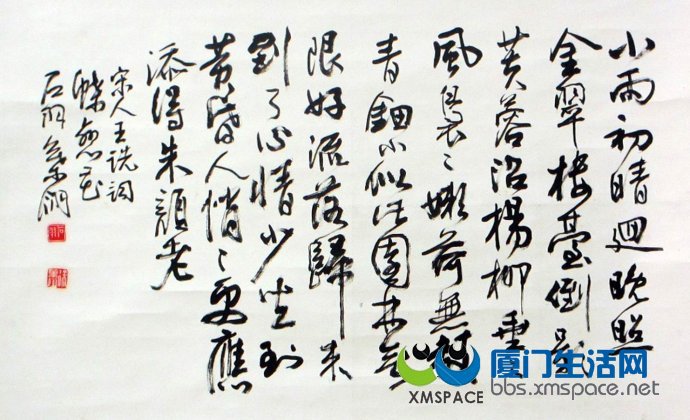 小雨初晴迴晚照
金翠樓臺倒影
芙蓉沼楊柳垂〻
風裊〻嫩荷無數
青鈿小似此園林無
限好流落歸來
到了心情少坐到
黃昏人悄〻更應
添得朱顏老
宋人王詵詞
蝶戀花
XMSPACE
厦门生活网
bbs.xmspace.net